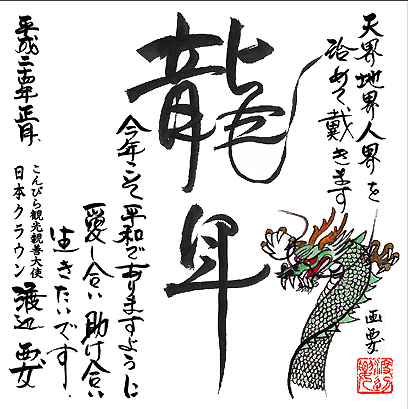 天界地界人界を
治めて戴きます
画 要
龍年
今年こそ平和でありますように
愛し合い 助け合い
生きたいです
こんぴら観光親善大使
日本クラウン 渡辺 要
平成二十四年 正月